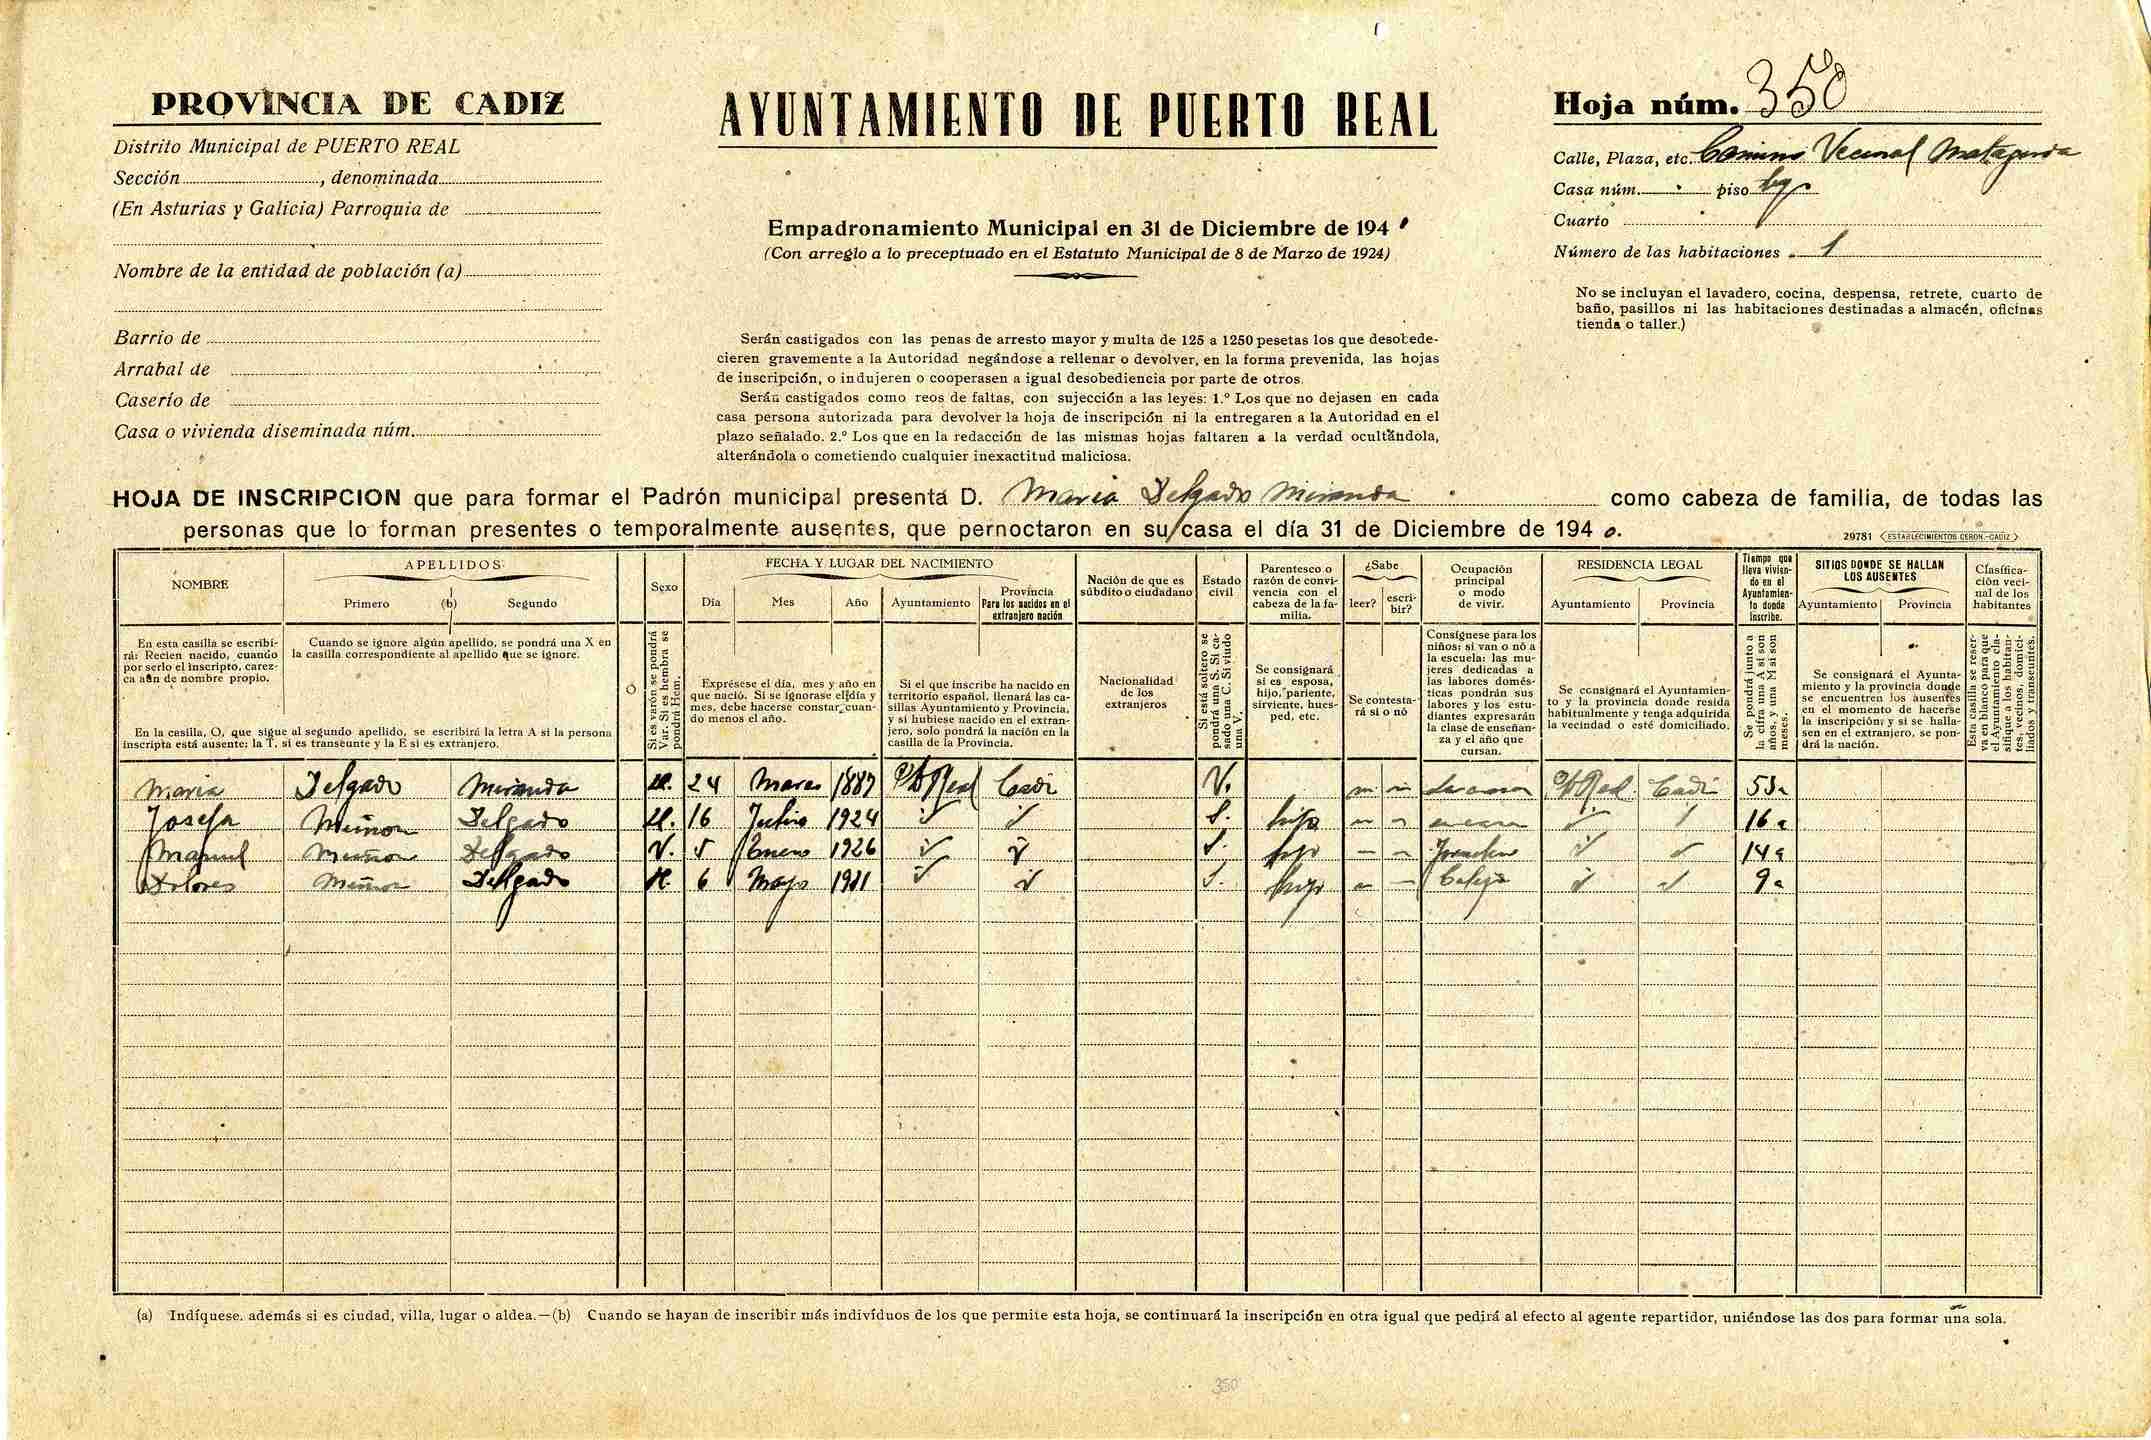 PROVINCIA DE CADIZ
Distrito Municipal de PUERTO REAL
Sección , denominada
(En Asturias y Galicia) Parroquia de
Nombre de la entidad de población (a)
Barrio de
Arrabal de
Caserío de
Casa o vivienda diseminada núm.
AYUNTAMIENTO DE PUERTO REAL
Empadronamiento Municipal en 31 de Diciembre de 194
(Con arreglo a lo preceptuado en el Estatuto Municipal de 8 de Marzo de 1924)
Serán castigados con las penas de arresto mayor y multa de 125 a 1250 pesetas los que desobede-
cieren gravemente a la Autoridad negándose a rellenar o devolver, en la forma prevenida, las hojas
de inscripción, o indujeren o cooperasen a igual desobediencia por parte de otros.
Serán castigados como reos de faltas, con sujección a las leyes: 1.º Los que no dejasen en cada
casa persona autorizada para devolver la hoja de inscripción ni la entregaren a la Autoridad en el
plazo señalado. 2.º Los que en la redacción de las mismas hojas faltaren a la verdad ocultándola,
alterándola o cometiendo cualquier inexactitud maliciosa.
Hoja núm. 350
Calle, Plaza, etc. Camino Vecinal Matagorda
Casa núm. piso bajo
Cuarto
Número de las habitaciones 1
No se incluyan el lavadero, cocina, despensa, retrete, cuarto de
baño, pasillos ni las habitaciones destinadas a almacén, oficinas
tienda o taller.)
HOJA DE INSCRIPCION que para formar el Padrón municipal presenta D. Maria Delgado Miranda como cabeza de familia, de todas las
personas que lo forman presentes o temporalmente ausentes, que pernoctaron en su casa el día 31 de Diciembre de 194 0.
29781 ESTABLECIMIENTOS CERON.-CADIZ
NOMBRE
APELLIDOS
Primero (b) Segundo
Sexo
FECHA Y LUGAR DEL NACIMIENTO
Día Mes Año Ayuntamiento
Provincia
Para los nacidos en el
extranjero nación
Nación de que es
súbdito o ciudadano
Estado
civil
Parentesco o
razón de convi-
vencia con el
cabeza de la fa-
milia.
¿Sabe
leer?
escri-
bir?
Ocupación
principal
o modo
de vivir.
RESIDENCIA LEGAL
Ayuntamiento Provincia
Tiempo que
lleva vivien-
do en el
Ayuntamien-
to donde
inscribe.
SITIOS DONDE SE HALLAN
LOS AUSENTES
Ayuntamiento Provincia
Clasifica-
ción veci-
nal de los
habitantes
En esta casilla se escribi-
rá: Recien nacido, cuando
por serlo el inscripto, carez-
ca aún de nombre propio.
Cuando se ignore algún apellido, se pondrá una X en
la casilla correspondiente al apellido que se ignore.
En la casilla, O, que sigue al segundo apellido, se escribirá la letra A si la persona
inscripta está ausente; la T, si es transeunte y la E si es extranjero.
O
Si es varón se pondrá
Var. Si es hembra se
pondrá Hem.
Exprésese el día, mes y año en
que nació. Si se ignorase el día y
mes, debe hacerse constar, cuan-
do menos el año.
Si el que inscribe ha nacido en
territorio español, llenará las ca-
sillas Ayuntamiento y Provincia,
y si hubiese nacido en el extran-
jero, solo pondrá la nación en la
casilla de la Provincia.
Nacionalidad
de los
extranjeros
Si está soltero se
pondrá una S. Si ca-
sado una C. Si viudo
una V.
Se consignará
si es esposa,
hijo, pariente,
sirviente, hues-
ped, etc.
Se contesta-
rá si o nó
Consígnese para los
niños: si van o nó a
la escuela: las mu-
jeres dedicadas a
las labores domés-
ticas pondrán sus
labores y los estu-
diantes expresarán
la clase de enseñan-
za y el año que
cursan.
Se consignará el Ayuntamien-
to y la provincia donde resida
habitualmente y tenga adquirida
la vecindad o esté domiciliado.
Se pondrá junto a
la cifra una A si son
años, y una M si son
meses.
Se consignará el Ayunta-
miento y la provincia donde
se encuentren los ausentes
en el momento de hacerse
la inscripción; y si se halla-
sen en el extranjero, se pon-
drá la nación.
Esta casilla se reser-
va en blanco para que
el Ayuntamiento cla-
sifique a los habitan-
tes, vecinos, domici-
liados y transeuntes.
Maria Delgado Miranda H. 24 Marzo 1887 Pto Real Cadi V. su casa Pto Real Cadi 53a
Josefa Muñoz Delgado H. 16 Julio 1924 S. hija su casa 16a
Manuel Muñoz Delgado V. 5 Enero 1926 S. hijo 14a
Dolores Muñoz Delgado H. 6 Mayo 1931 S. hija Colegio 9a
(a) Indíquese, además si es ciudad, villa, lugar o aldea.—(b) Cuando se hayan de inscribir más indivíduos de los que permite esta hoja, se continuará la inscripción en otra igual que pedirá al efecto al agente repartidor, uniéndose las dos para formar una sola.
350